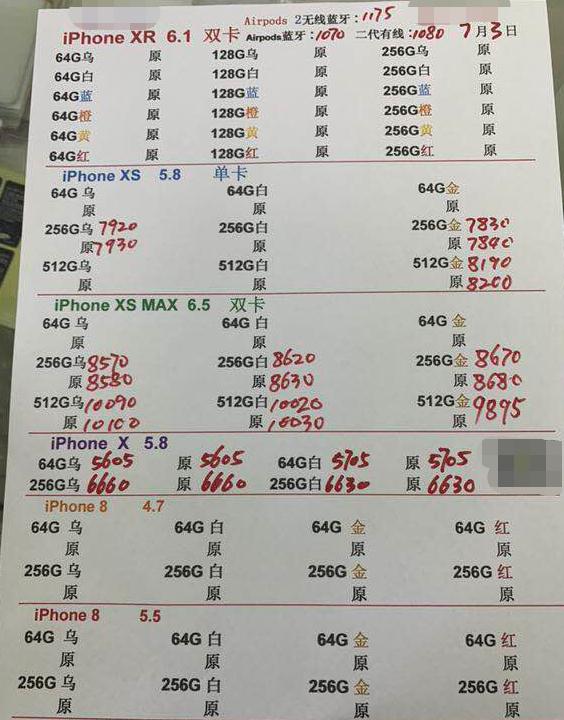 Airpods 2无线蓝牙:1175
iPhone XR 6.1 双卡 Airpods蓝牙:1070 二代有线:1080 7月3日
64G乌 原 128G乌 原 256G乌 原
64G白 原 128G白 原 256G白 原
64G蓝 原 128G蓝 原 256G蓝 原
64G橙 原 128G橙 原 256G橙 原
64G黄 原 128G黄 原 256G黄 原
64G红 原 128G红 原 256G红 原
iPhone XS 5.8 单卡
64G乌 64G白 64G金
原 原 原
256G乌 7920 256G白 256G金 7830
原7930 原 原 7840
512G乌 512G白 512G金 8190
原 原 原 8200
iPhone XS MAX 6.5 双卡
64G 乌 64G 白 64G 金
原 原 原
256G乌8570 256G白8620 256G金 8670
原 8580 原8630 原 8680
512G乌10090 512G白10020 512G金 9895
原 10100 原 10030 原
iPhone X 5.8
64G乌 5605 原 5605 64G白 5705 原 5705
256G乌 6660 原 6660 256G白6630 原 6630
iPhone 8 4.7
64G 乌 64G 白 64G 金 64G 红
原 原 原 原
256G 乌 256G 白 256G 金 256G 红
原 原 原 原
iPhone 8 5.5
64G 乌 64G 白 64G 金 64G 红
原 原 原 原
256G 乌 256G 白 256G 金 256G 红
原 原 原 原